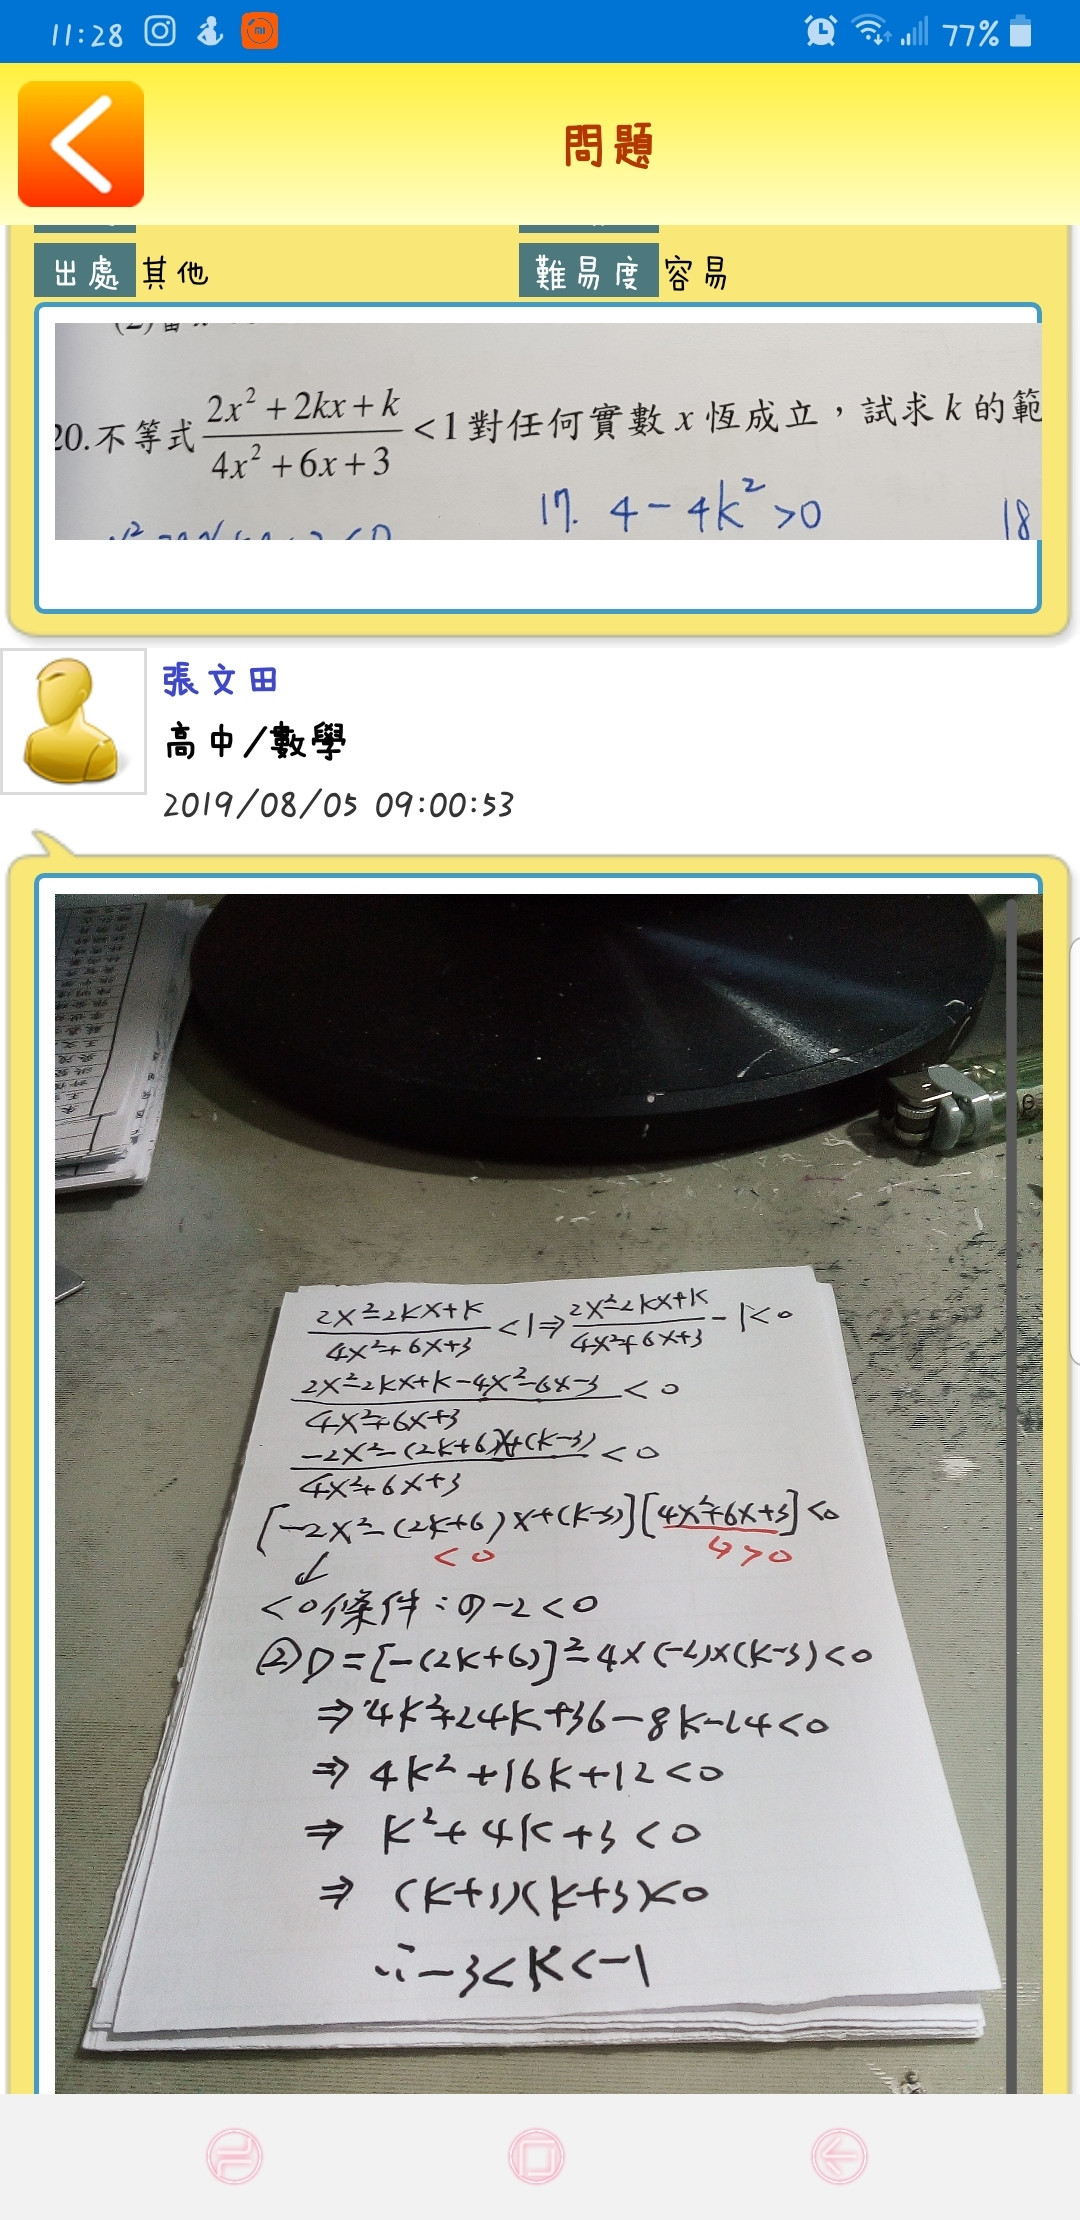 11:28 77%
問題
出處 其他 難易度 容易
20.不等式 \frac{2x²+2kx+k}{4x²+6x+3} <1對任何實數 x 恆成立，試求 k 的範
17. 4-4k²>0 18
張文田
高中/數學
2019/08/05 09:00:53
\frac{2x²-2kx+k}{4x²+6x+3} <1⇒ \frac{2x²-2kx+k}{4x²+6x+3} -1<0
\frac{2x²-2kx+k-4x²-6x-3}{4x²+6x+3} <0
\frac{-2x²-(2k+6)x+(k-3)}{4x²+6x+3} <0
[-2x²-(2k+6)x+(k-3)][4x²+6x+3]<0
<0 ↳>0
<0條件:①-2<0
②D=[-(2k+6)]²-4×(-2)×(k-3)<0
⇒4k²+24k+36-8k-24<0
⇒ 4k²+16k+12<0
⇒ k²+4k+3<0
⇒ (k+1)(k+3)<0
∴-3<k<-1